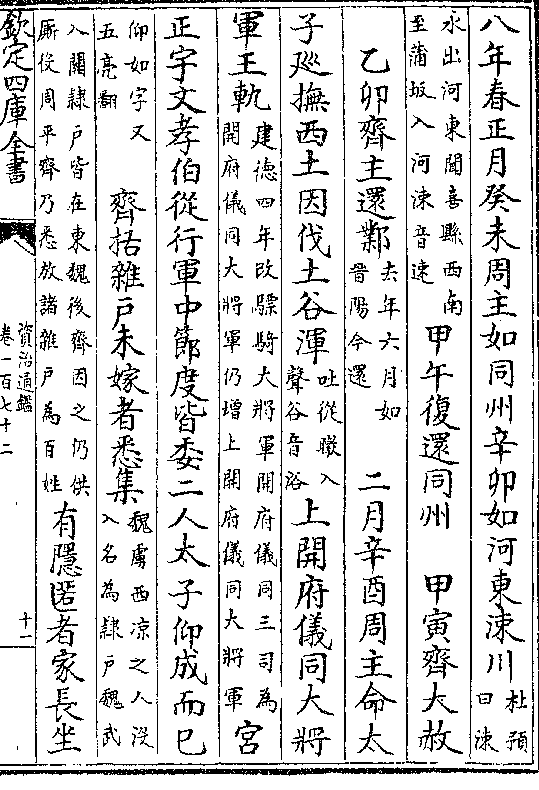 八年春正月癸未周主如同州辛卯如河東涑川杜預曰涑
水出河東聞喜縣西南至蒲坂入河涑音速甲午復還同州 甲寅齊大赦
乙卯齊主還鄴去年六月如晉陽今還 二月辛酉周主命太
子廵撫西土因伐土谷渾吐從暾入聲谷音浴上開府儀同大將
軍王軌建德四年改驃騎大將軍開府儀同三司為開府儀同大將軍仍增上開府儀同大將軍宮
正宇文孝伯從行軍中節度皆委二人太子仰成而已
仰如字又五亮翻 齊括雜戸未嫁者悉集魏虜西凉之人没入名為隷戸魏武
入關隷戸皆在東魏後齊因之仍供厮役周平齊乃悉放諸雜戸為百姓有隱匿者家長坐
欽定四庫全書
資治通鑑
卷一百七十二
十一